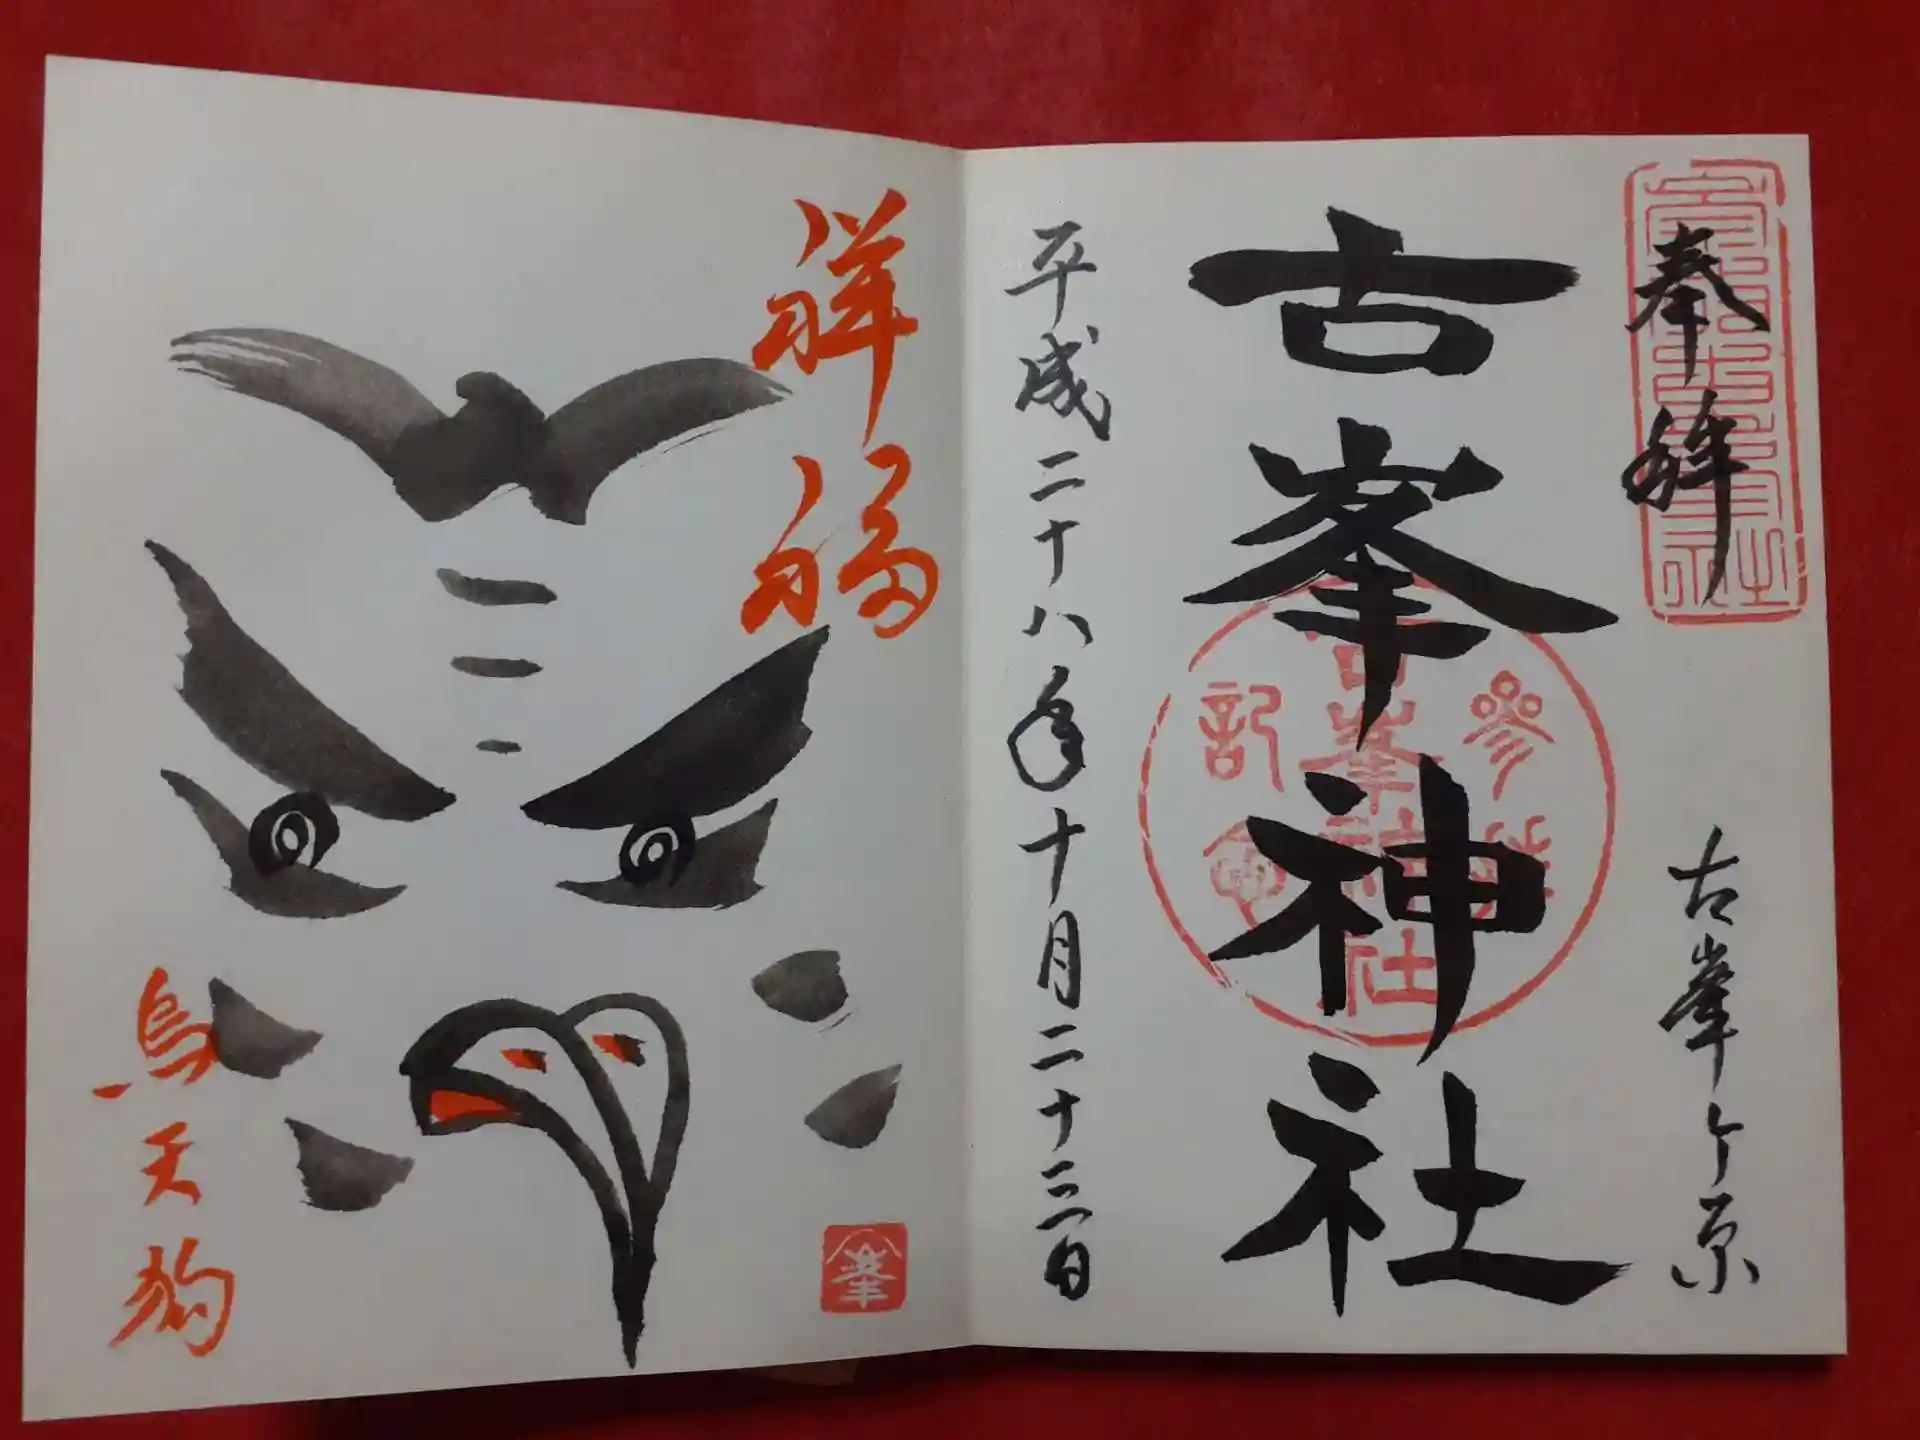 奉拝
古峯ヶ原
古峯神社
参拝
記念
古峯神社
平成二十八年十月二十三日
祥福
烏天狗
峯